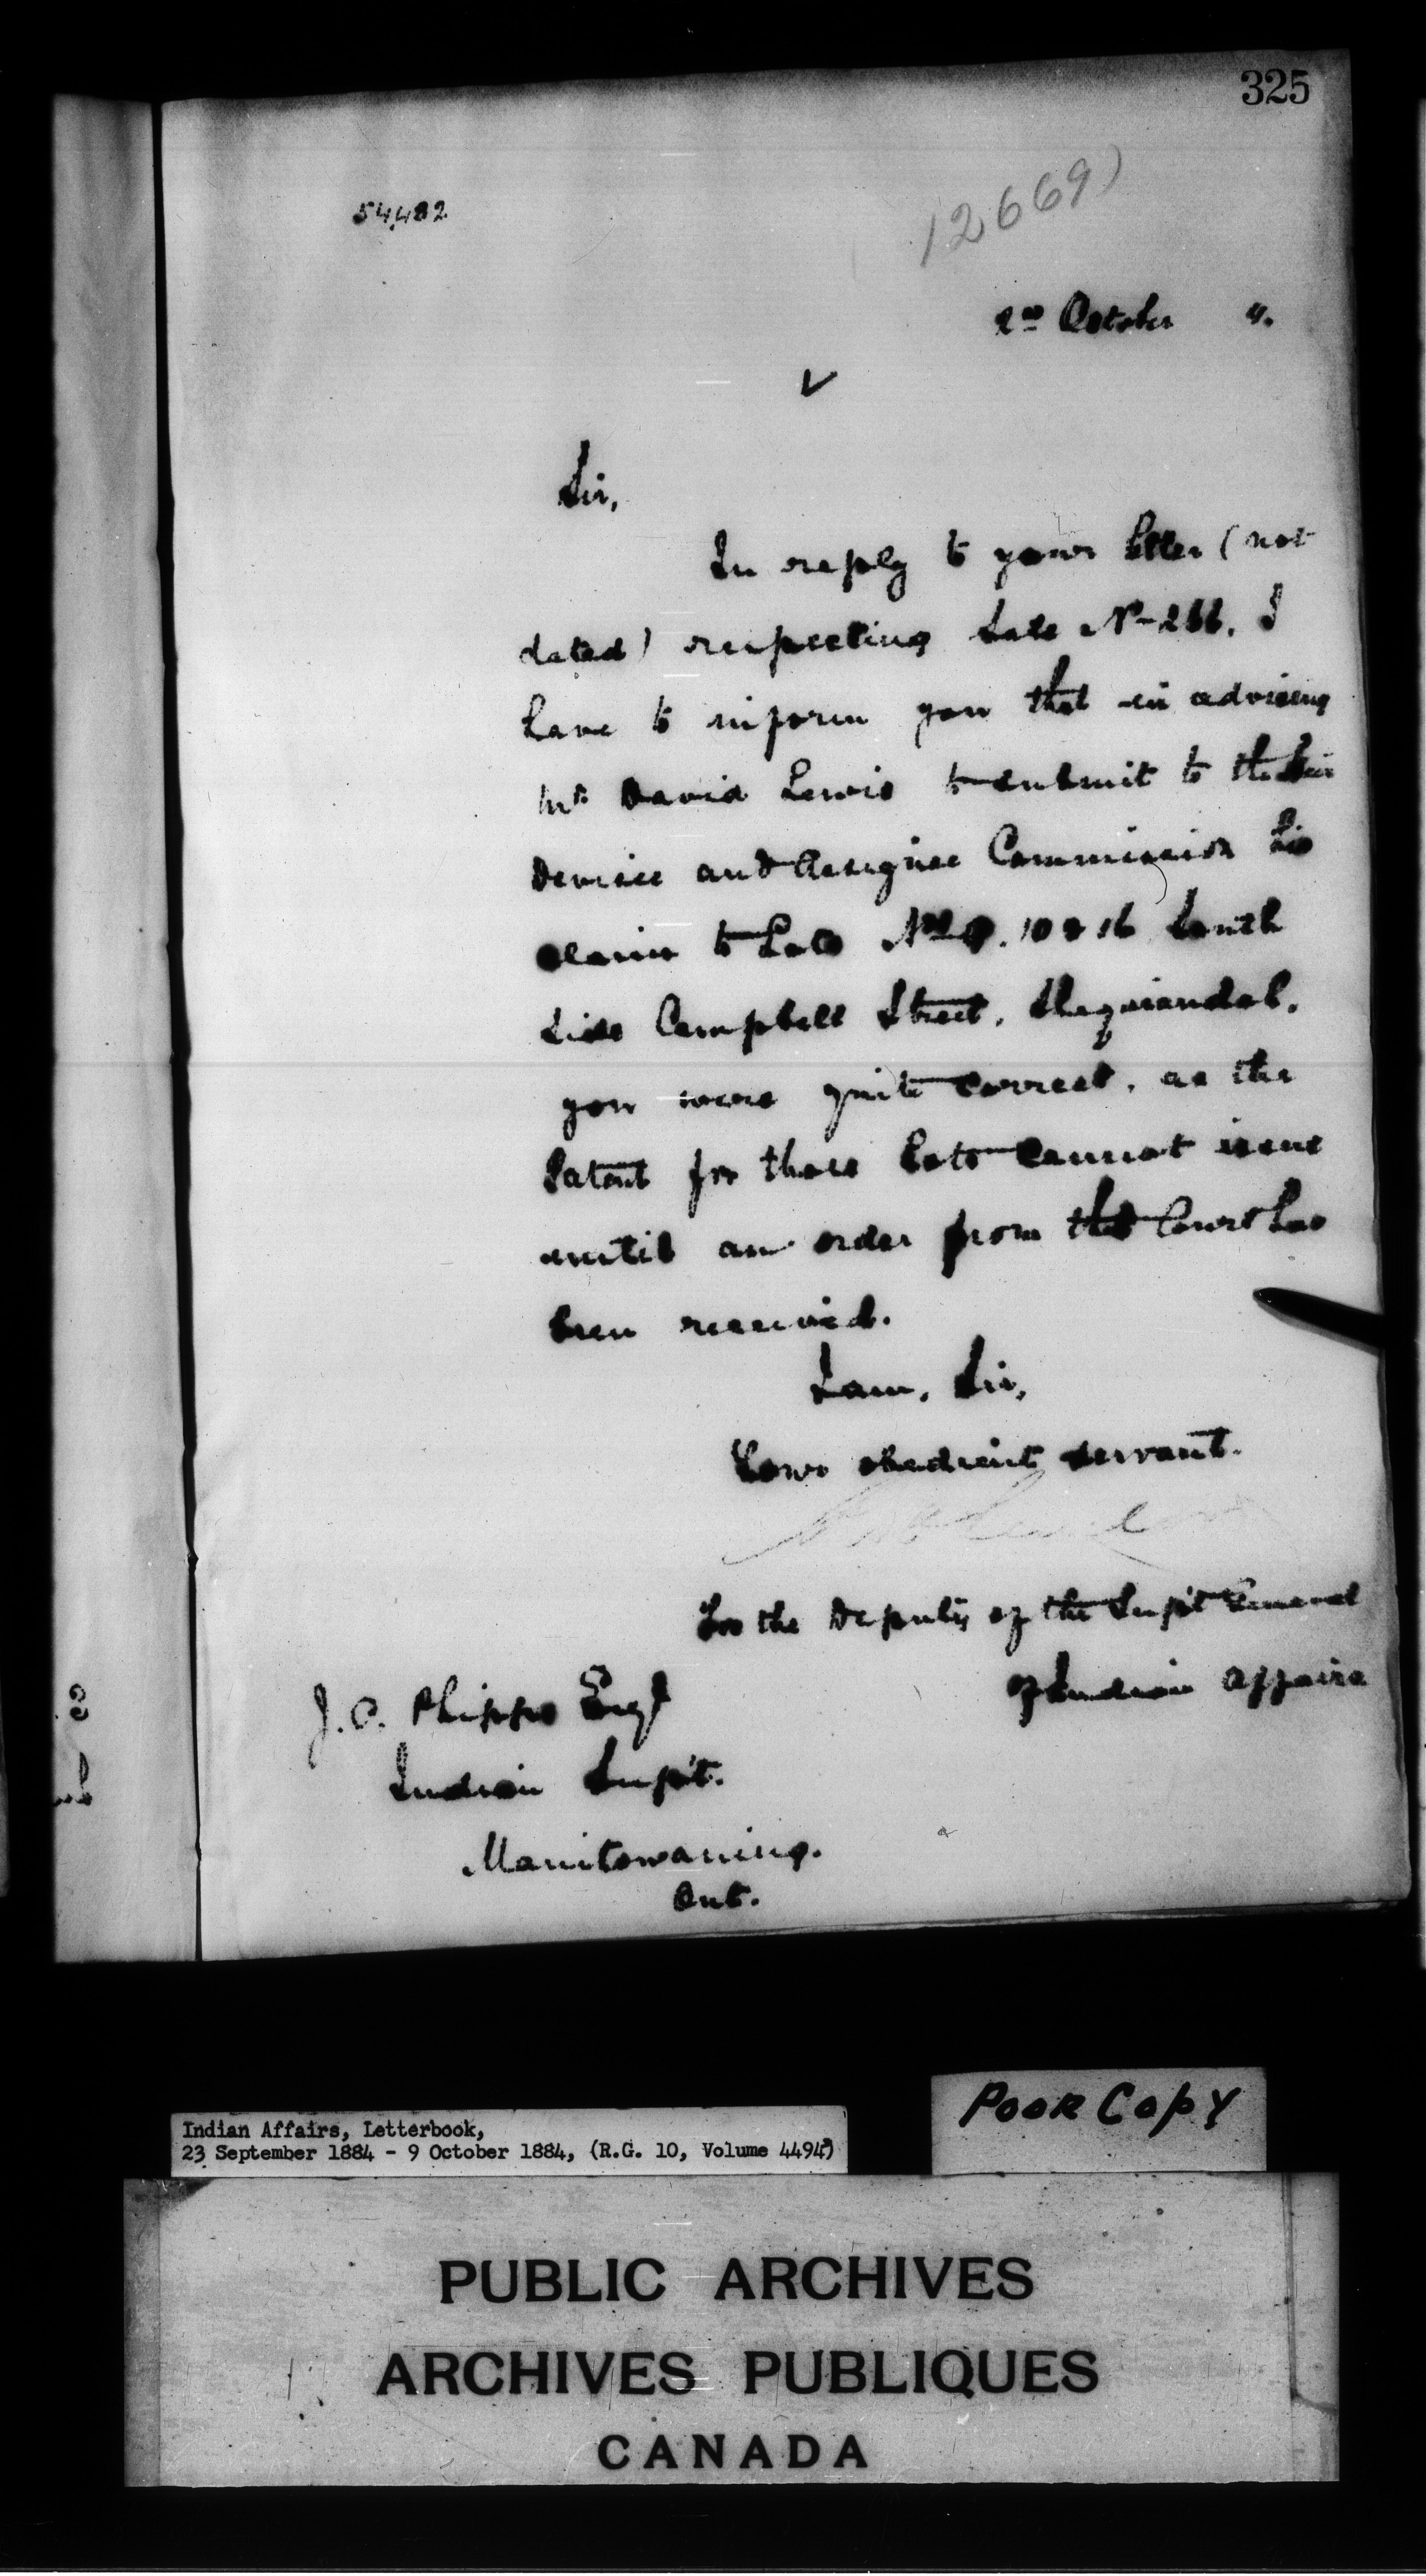 325
54,482
12669)
2nd October 4.
Sir,
In reply to your letter (not
dated) respecting Sale No 266. I
have to inform you that in advising
Mr David Lewis to submit to the Heir
Devisee and Assignee Commission his
claim to Lots Nos 9. 10 & 16 South
Side Campbell Street. Sheguiandah.
you were quite correct. as the
Patent for those Lots cannot issue
until an order from that Court has
been received.
I am, Sir,
Your obedient servant.
For the Deputy of the Supt General
of Indian Affairs
J. C. Phipps Esqr
Indian Supt.
Manitowaning.
Ont.
Poor Copy
Indian Affairs, Letterbook,
23 September 1884 - 9 October 1884, (R.G. 10, Volume 4494)
PUBLIC ARCHIVES
ARCHIVES PUBLIQUES
CANADA